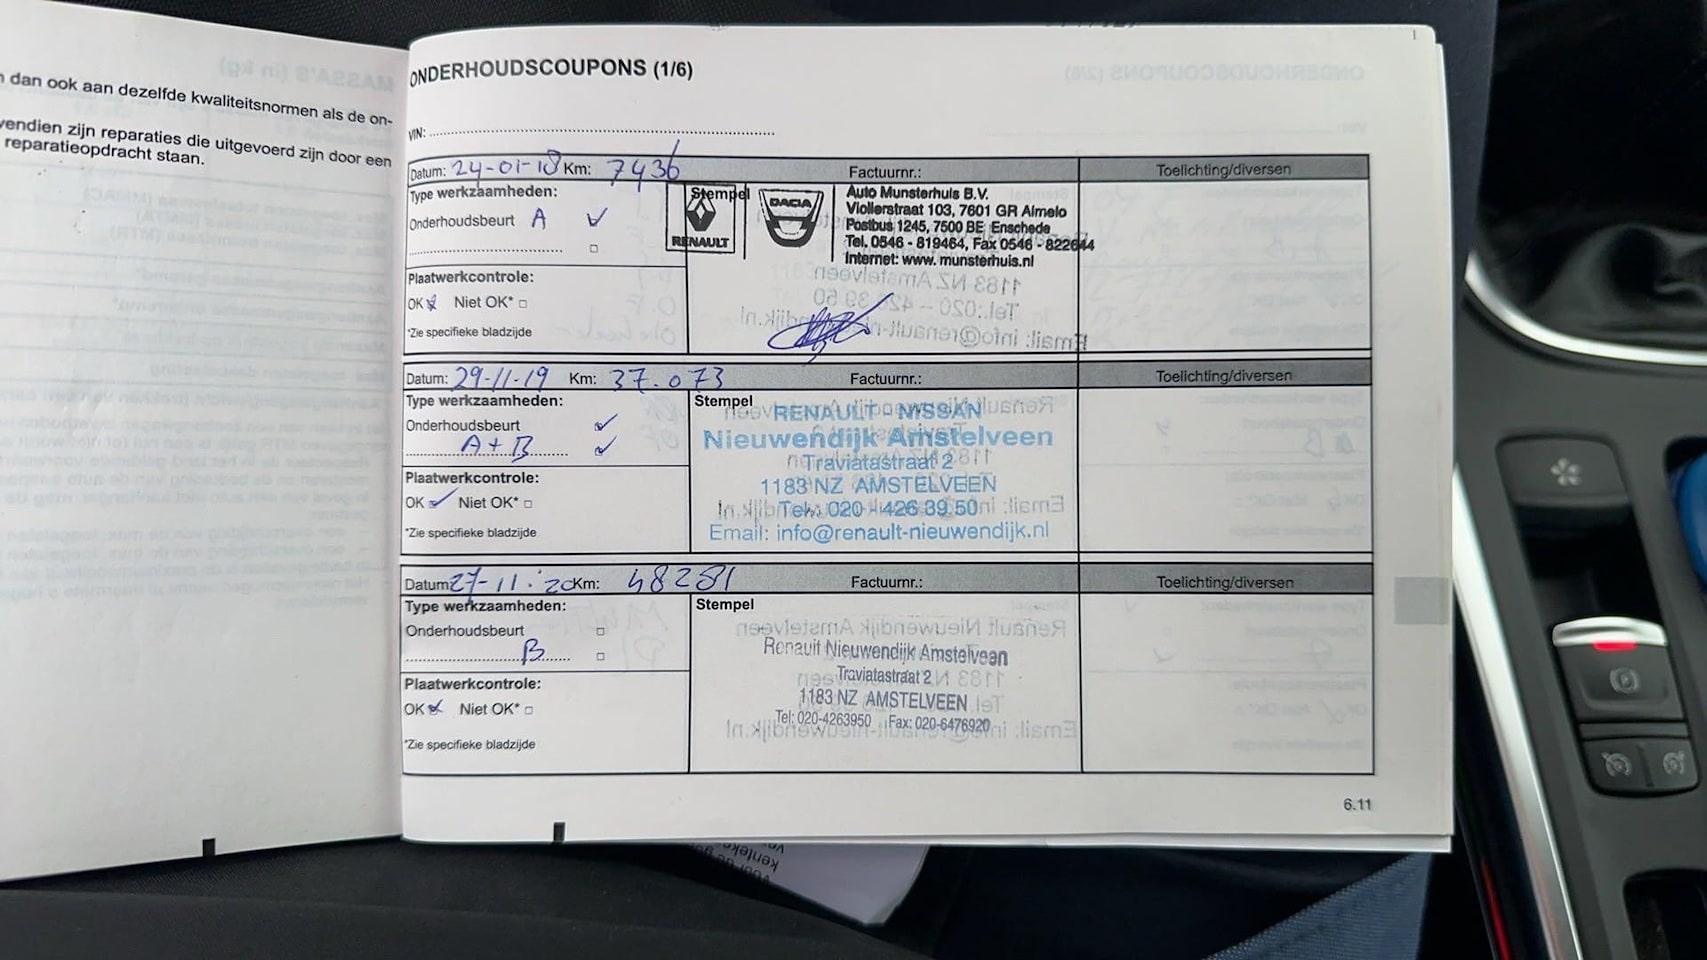 n dan ook aan dezelfde kwaliteitsnormen als de on-
vendien zijn reparaties die uitgevoerd zijn door een
reparatieopdracht staan.
ONDERHOUDSCOUPONS (1/6)
VIN:
Datum: 24-01-18 Km: 7436 Factuurnr.: Toelichting/diversen
Type werkzaamheden:
Onderhoudsbeurt A
Plaatwerkcontrole:
OK Niet OK*
*Zie specifieke bladzijde
Stempel
RENAULT
DACIA
Auto Munsterhuis B.V.
Violierstraat 103, 7601 GR Almelo
Postbus 1245, 7500 BE Enschede
Tel. 0546 - 819464, Fax 0546 - 822644
Internet: www.munsterhuis.nl
Datum: 29-11-19 Km: 37.073 Factuurnr.: Toelichting/diversen
Type werkzaamheden:
Onderhoudsbeurt
A + B
Plaatwerkcontrole:
OK Niet OK*
*Zie specifieke bladzijde
Stempel
RENAULT - NISSAN
Nieuwendijk Amstelveen
Traviatastraat 2
1183 NZ AMSTELVEEN
Tel.: 020 - 426 39 50
Email: info@renault-nieuwendijk.nl
Datum: 27-11-'20 Km: 48281 Factuurnr.: Toelichting/diversen
Type werkzaamheden:
Onderhoudsbeurt
B
Plaatwerkcontrole:
OK Niet OK*
*Zie specifieke bladzijde
Stempel
Renault Nieuwendijk Amstelveen
Traviatastraat 2
1183 NZ AMSTELVEEN
Tel: 020-4263950 Fax: 020-6476920
6.11